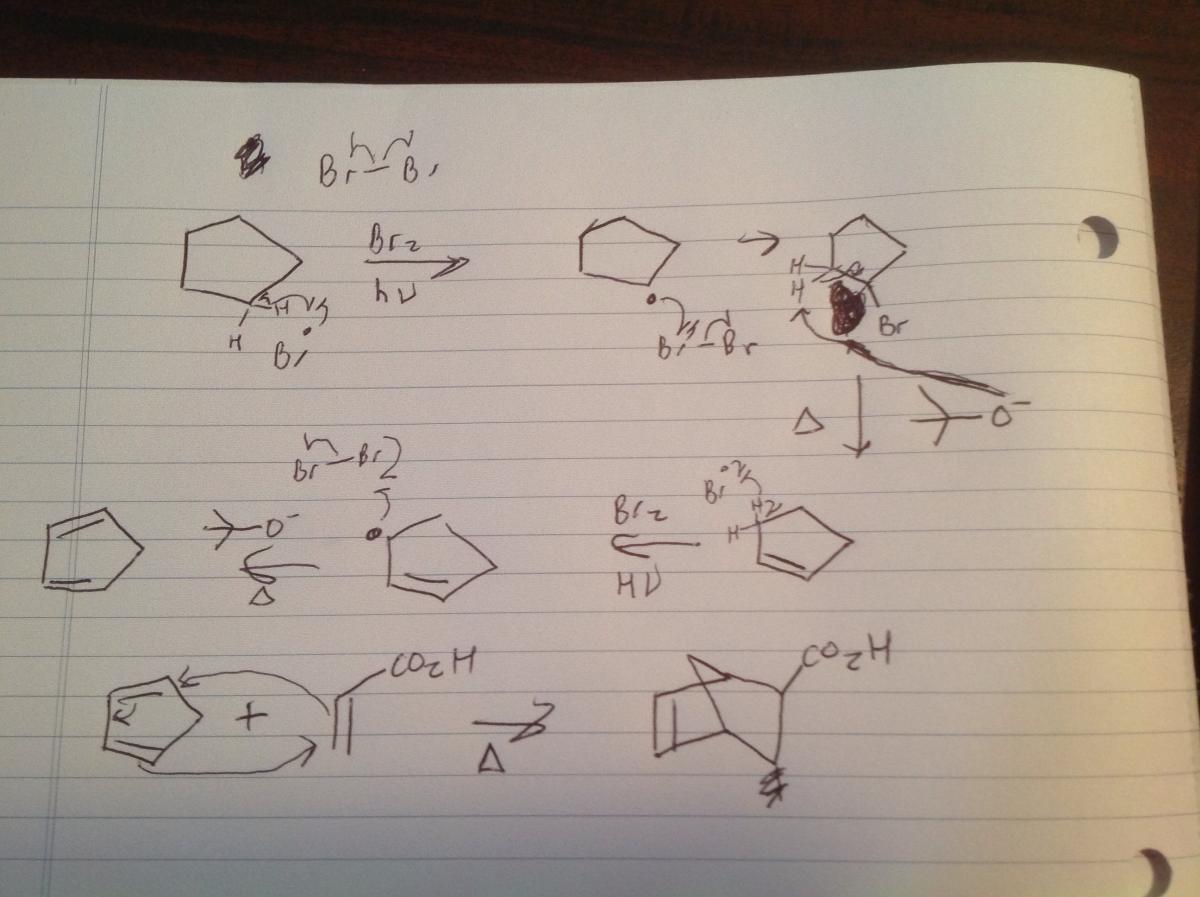 Br–Br
Br2
hν
H
H
Br
Br–Br
H
H
Br
Δ
O⁻
Br–Br
Br
O⁻
Br2
H
H
Δ
Hν
CO2H
+
Δ
CO2H